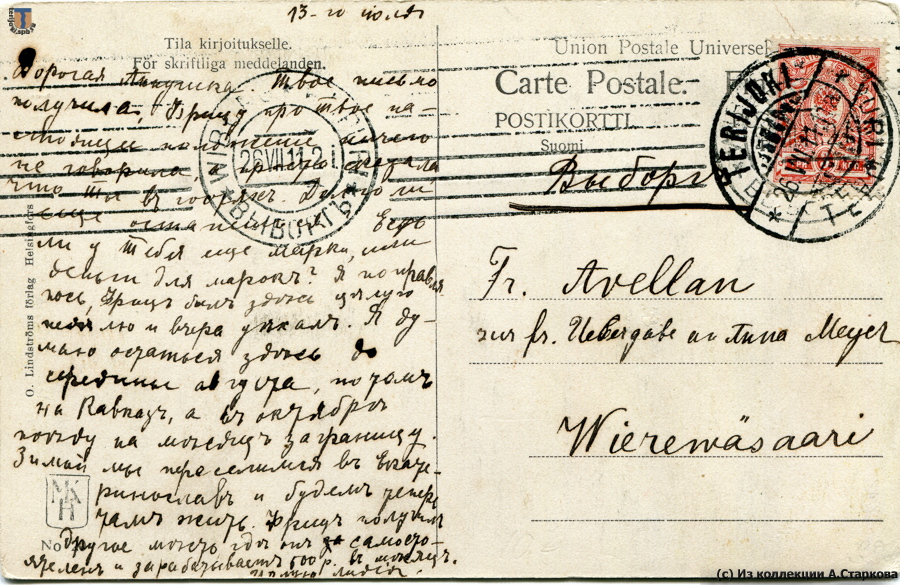 13-го июля
Tila kirjoitukselle.
För skriftliga meddelanden.
Дорогая Аннушка. Твое письмо
получила. Фрицъ про твое на-
стоящее положение ничего
не говорила я просто думала
что ты въ горахъ. Долго ли
еще останешься Есть
ли у тебя еще марки, или
деньги для марокъ? Я поправля
лось, Фрицъ былъ здѣсь цѣлую
недѣлю и вчера уѣхалъ. Я ду-
маю остаться здѣсь до
середины августа, потомъ
на Кавказъ, а въ октябрѣ
поѣду на мѣсяцъ заграницу.
Зимой мы переселимся въ Екате-
ринославъ и будемъ теперь
тамъ жить. Фрицъ получилъ
другое мѣсто гдѣ онъ самосто-
ятеленъ и зарабатываетъ 500 р. въ мѣсяцъ.
O. Lindströms förlag Helsingfors
No
26.VII.11
ВЫБОРГЪ
Union Postale Universe
Carte Postale.
POSTIKORTTI.
Suomi
TERIJOKI
26.VII.11
Выборг
Fr. Avellan
zur fr. Uebergabe an Anna Meyer
Wierewäsaari
(c) Из коллекции А.Старкова
terijoki.spb.ru